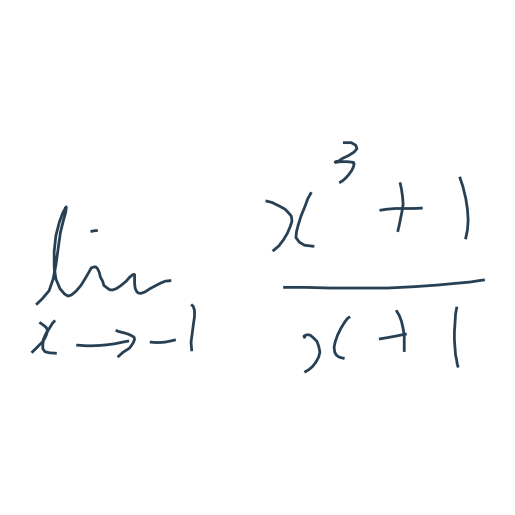 lim x→-1 (x^3 + 1)/(x + 1)